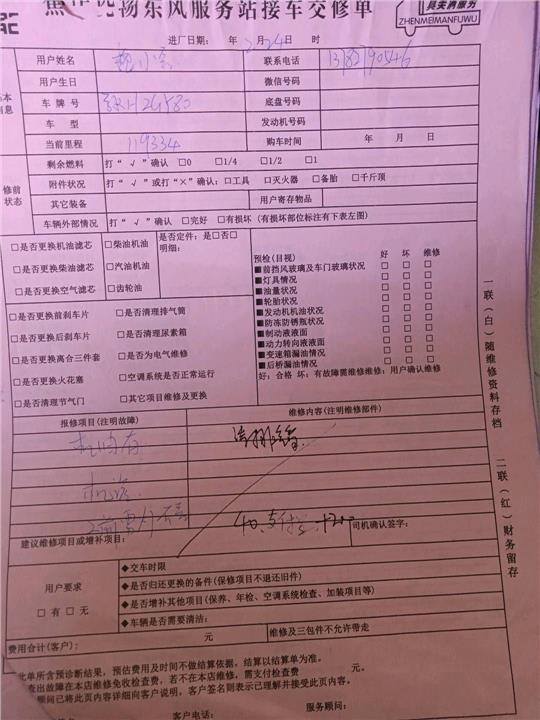 东风服务站接车交修单
ZHENMEIMANFUWU
进厂日期： 年 2月24日 时
用户姓名 联系电话
用户生日 微信号码
车 牌 号 底盘号码
车 型 发动机号码
当前里程 119334 购车时间 年 月 日
剩余燃料 打“√”确认 □0 □1/4 □1/2 □1
附件状况 打“√”或打“×”确认：□工具 □灭火器 □备胎 □千斤顶
修前
状态
其它装备 用户寄存物品
车辆外部情况 打“√”确认 □完好 □有损坏（有损坏部位标注有下表左图）
□是否更换机油滤芯 □柴油机油 是否定件：是□否□
明细：
□是否更换柴油滤芯 □汽油机油
□是否更换空气滤芯 □齿轮油
预检(目视) 好 坏 维修
■前挡风玻璃及车门玻璃状况 □ □ □
■灯具情况 □ □ □
■油量状况 □ □ □
■轮胎状况 □ □ □
■发动机机油状况 □ □ □
■防冻防锈瓶状况 □ □ □
■制动液液面 □ □ □
■动力转向液液面 □ □ □
■变速箱漏油情况 □ □ □
■后桥漏油情况 □ □ □
好：合格 坏：有故障需维修维修：用户确认维修
□是否更换前刹车片 □是否清理排气筒
□是否更换后刹车片 □是否清理尿素箱
□是否更换离合三件套 □是否为电气维修
□是否更换火花塞 □空调系统是否正常运行
□是否清理节气门 □其它项目维修及更换
一联（白）随维修资料存档
二联（红）财务留存
报修项目(注明故障) 维修内容(注明维修部件)
建议维修项目或增补项目： 司机确认签字：
用户要求
□ 有 □ 无
◆交车时限
◆是否归还更换的备件(保修项目不退还旧件)
◆是否增补其他项目(保养、年检、空调系统检查、加装项目等)
◆车辆是否需要清洁：
费用合计(客户)： 元 维修及三包件不允许带走
此单所含预诊断结果，预估费用及时间不做结算依据，结算以结算单为准。
查出故障在本店维修免收检查费，若不在本店维修，需支付检查费 元。
顾问已将此页内容详细向客户说明，客户签名则表示已理解并接受此页内容。
客户电话： 服务顾问：